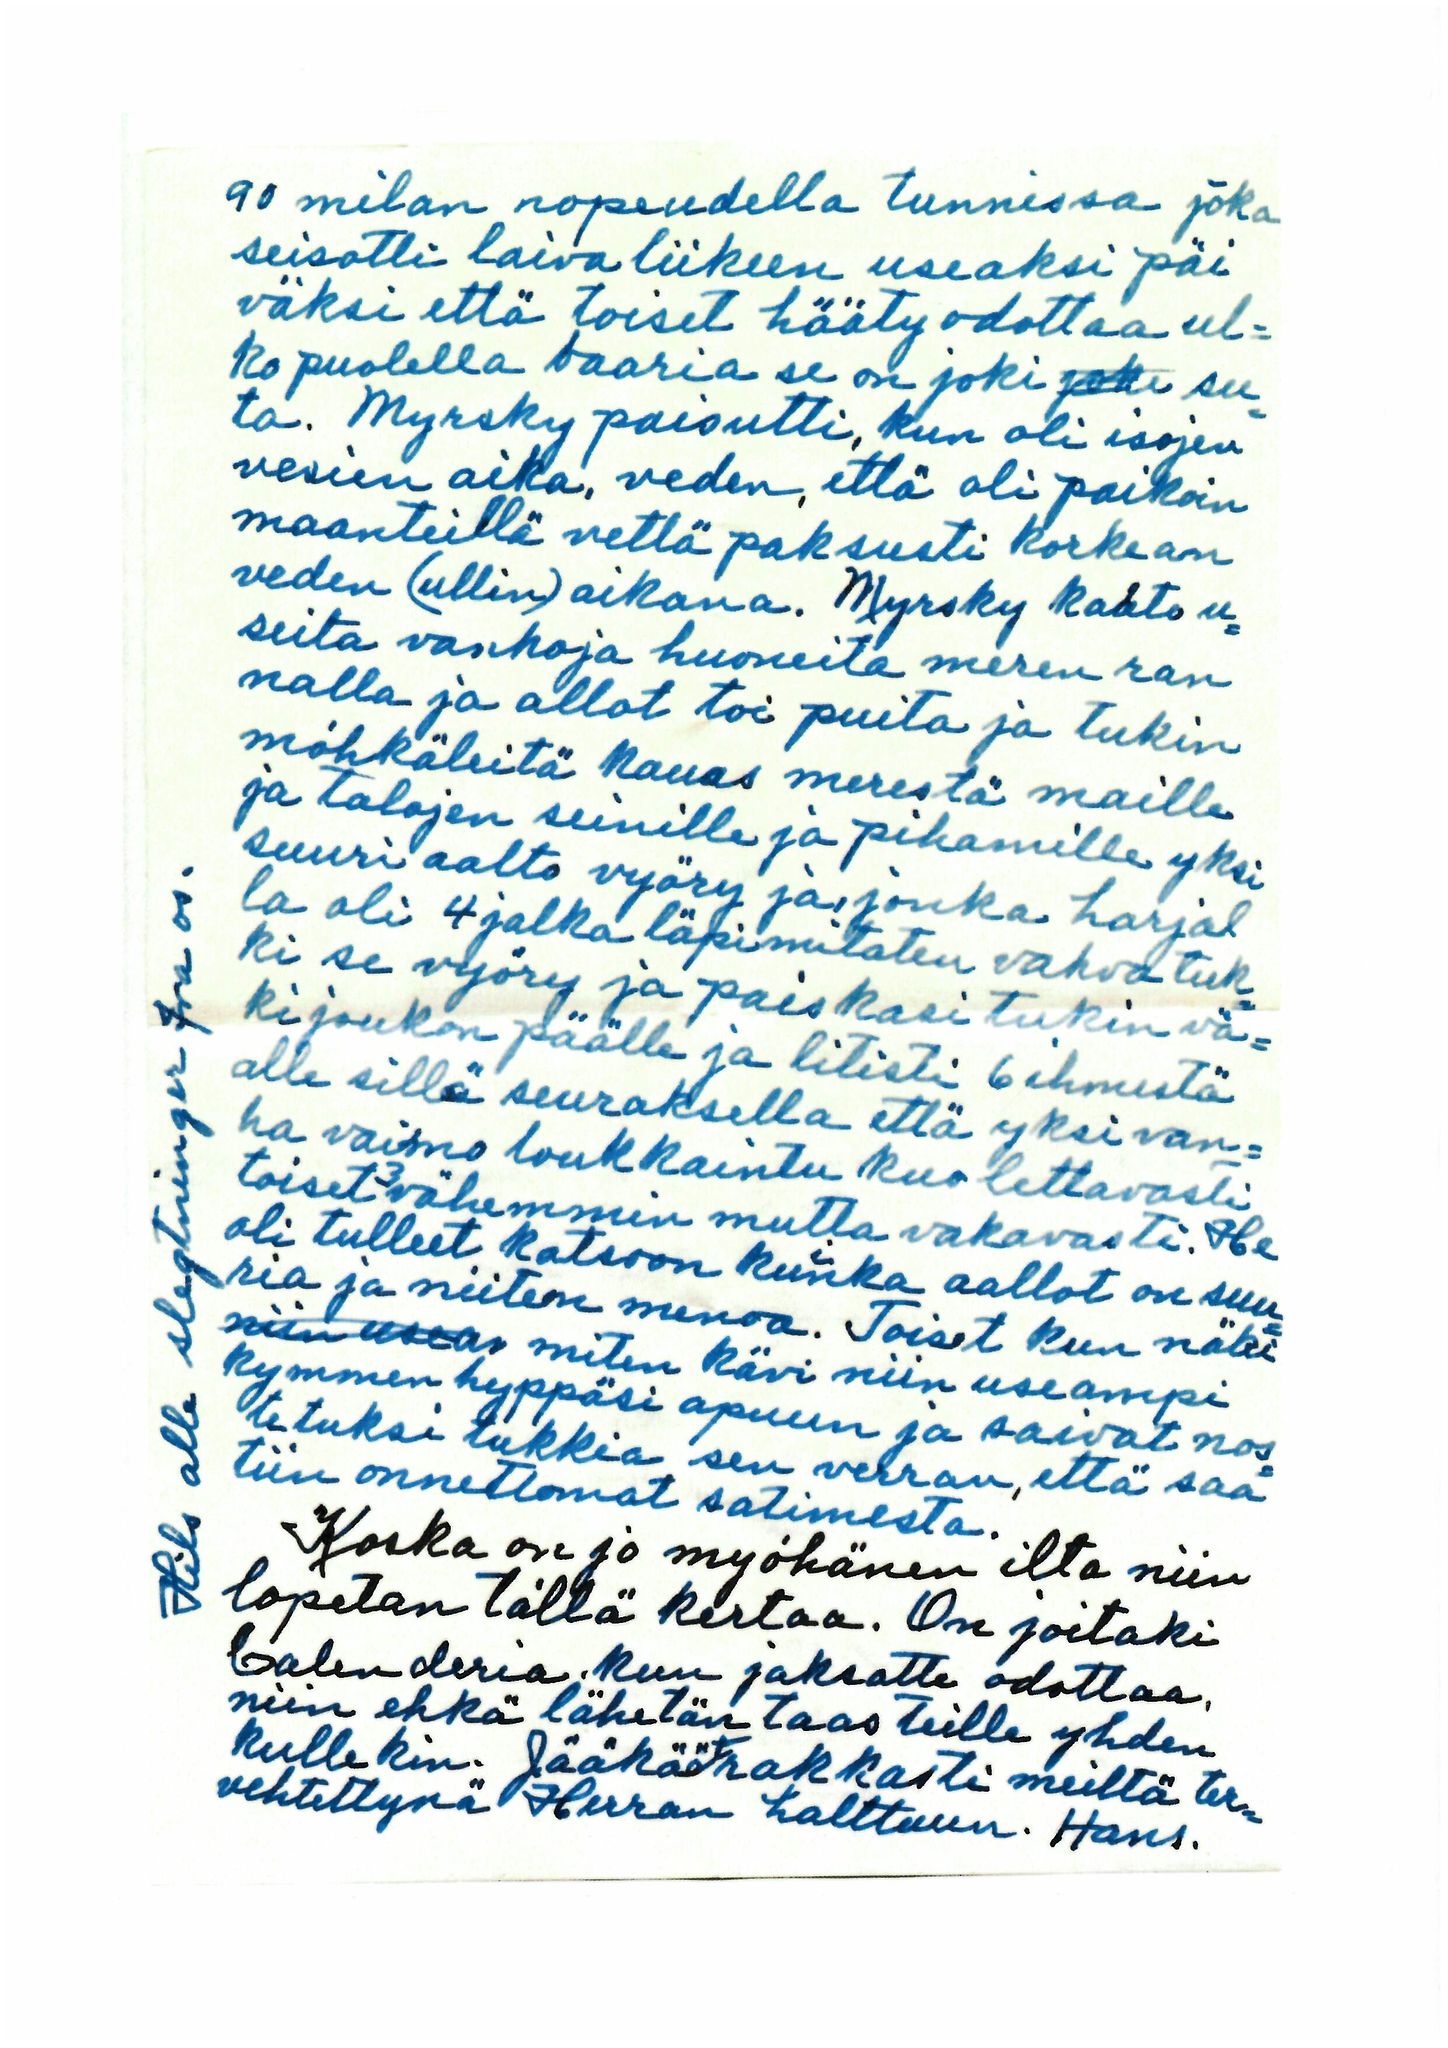 90 milan nopeudella tunnissa joka
seisotti laiva liikeen useaksi päi
väksi että toiset hääty odottaa ul=
kopuolella baaria se on joki su=
ta. Myrsky paisutti, kun oli isojen
vesien aika, veden, että oli paikoin
maanteillä vettä paksusti korkean
veden (ullin) aikana. Myrsky kaato u=
seita vanhoja huoneita meren ran
nalla ja allot toi puita ja tukin
möhkäleitä kauas merestä maille
ja talojen seinille ja pihamille yksi
suuri aalto vyöry ja, jonka harjal
la oli 4 jalka läpimitaten vahva tuk=
ki se vyöry ja paiskasi tukin vä=
ki joukon päälle ja litisti 6 ihmistä
alle sillä seuraksella että yksi van=
ha vaimo loukkaintu kuolettavasti
toiset 3 vähemmin mutta vakavasti. He
oli tulleet katsoon kuinka aallot on suu=
ria ja niiten menoa. Toiset kun näki
niin usean miten kävi niin useampi
kymmen hyppäsi apuun ja saivat nos=
tetuksi tukkia sen verran, että saa
tiin onnettomat satimesta.
Koska on jo myöhänen ilta niin
lopetan tällä kertaa. On joitaki
Calenderia, kun jaksatte odottaa,
niin ehkä lähetän taas teille yhden
kullekin. Jääkäät rakkasti meiltä ter=
vehtettynä Herran halttuun. Hans.
Hils alle slegtninger fra os.